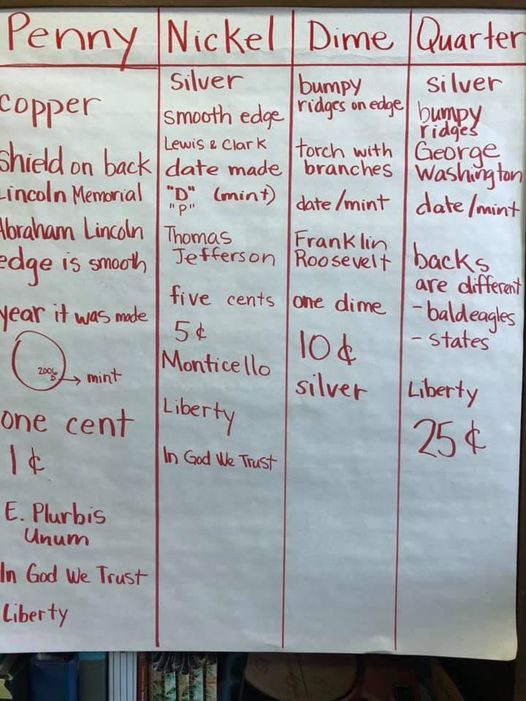 Penny
copper
shield on back
Lincoln Memorial
Abraham Lincoln
edge is smooth
year it was made
2006
D
→ mint
one cent
1¢
E. Plurbis
Unum
In God We Trust
Liberty
Nickel
Silver
smooth edge
Lewis & Clark
date made
"D" (mint)
"P"
Thomas
Jefferson
five cents
5¢
Monticello
Liberty
In God We Trust
Dime
bumpy
ridges on edge
torch with
branches
date/mint
Franklin
Roosevelt
one dime
10¢
silver
Quarter
silver
bumpy
ridges
George
Washington
date/mint
backs
are different
- bald eagles
- states
Liberty
25¢